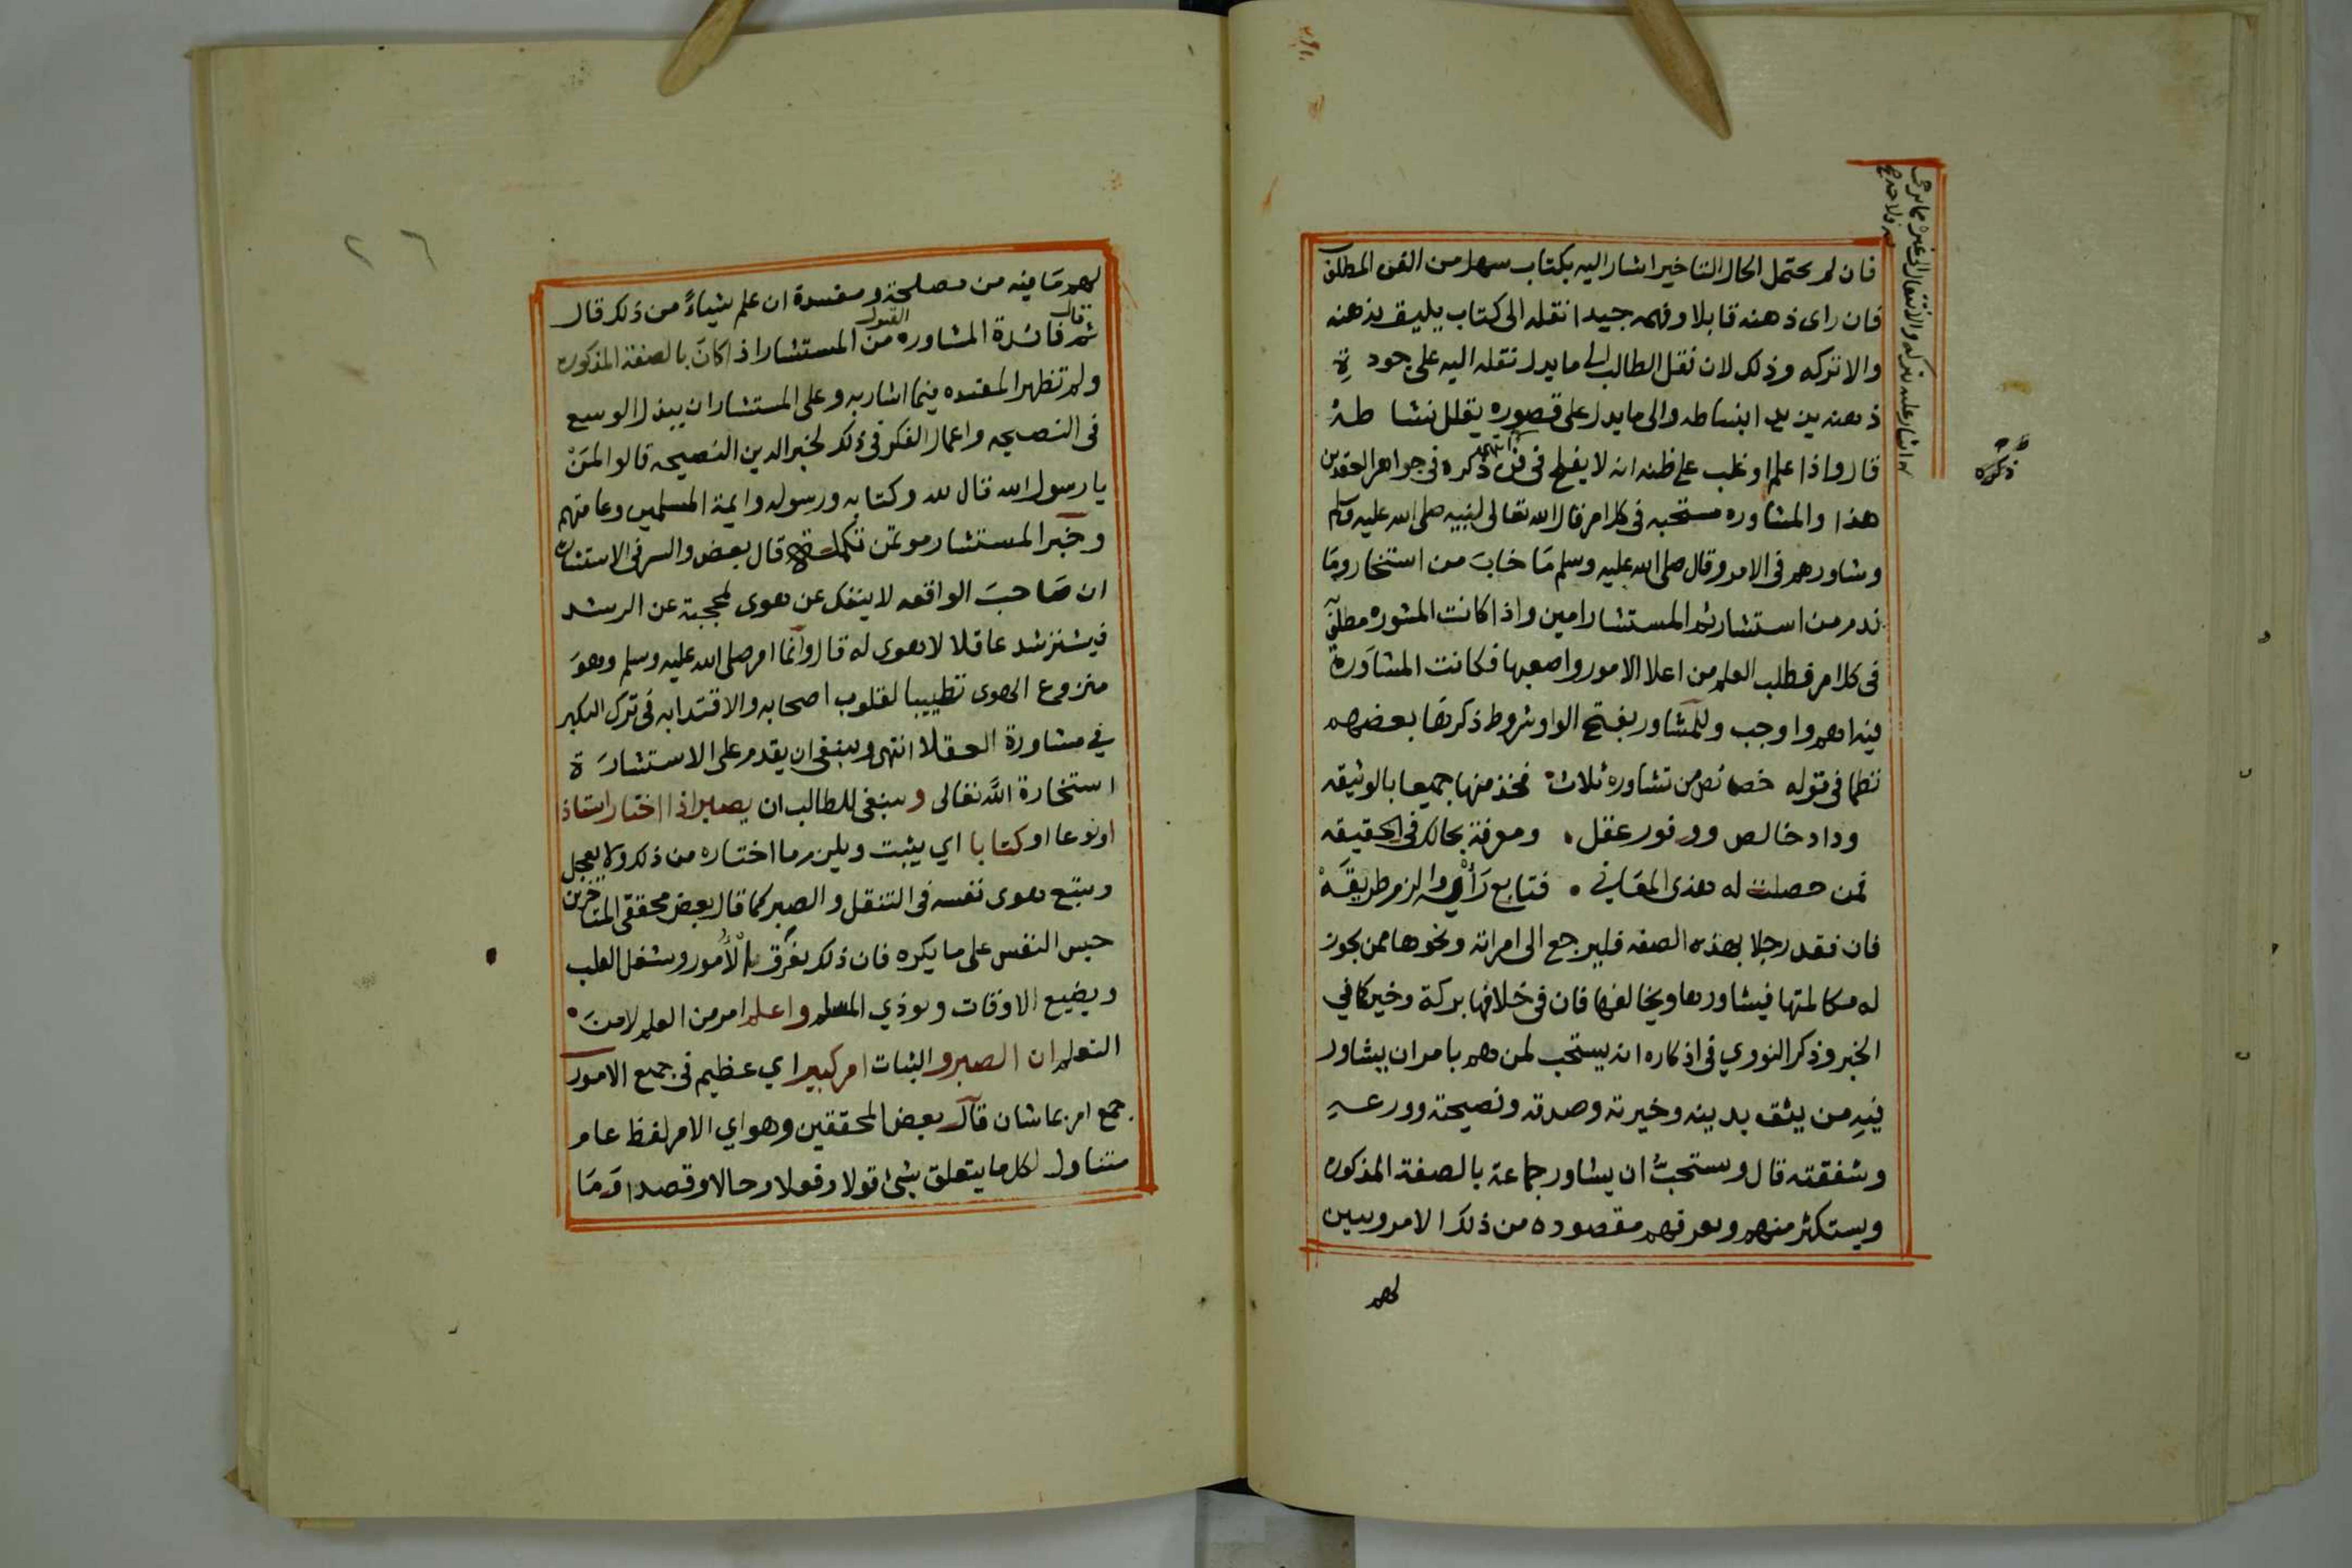 فان لم يحتمل الحال التاخير اشار اليه بكتاب سهل من الفن المطلوب
فان راى ذهنه قابلا وفهمه جيدا نقله الى كتاب يليق بذهنه
والا تركه وذلك لان نقل الطالب الى ما يدل نقله اليه على جودة
ذهنه يزيد انبساطه والى ما يدل على قصوره يقلل نشاطه
قال واذا علم او غلب على ظنه انه لا يفلح في فن ذكره في جواهر العقدين
هذا والمشاوره مستحبه في كل امر قال الله تعالى لنبيه صلى الله عليه وسلم
وشاورهم في الامر وقال صلى الله عليه وسلم مَا خابَ من استخار ومَا
ندم من استشار ثم المستشار امين واذا كانت المشوره مطلوبة
في كل امر فطلب العلم من اعلا الامور واصعبها فكانت المشاوَرة
فيه اهم واوجب وللمشاور بفتح الواو شروط ذكرهَا بعضهم
نظما في قوله خصائص من تشاوره ثلاث فخذ منها جميعا بالوثيقه
وداد خالص ووفور عقل ومعرفة بحالك في الحقيقه
فمن حصلت له هذى المعَانى فتابع رَأْيه والزم طريقَهْ
فان فقد رجلا بهذه الصفه فليرجع الى امراته ونحوها ممن يجوز
له مكالمتها فيشاورها ويخالفها فان في خلافها بركة وخير كما في
الخبر وذكر النووي في اذكاره انه يستحب لمن هم بامر ان يشاور
فيهِ من يثق بدينه وخيرته وصدقه ونصيحته وورعهِ
وشفقته قال ويستحبُّ ان يشاور جماعة بالصفة المذكوره
ويستكثر منهم ويعرفهم مقصوده من ذلك الامر ويبين
لهم
اشار عليه بتركه والانتقال الى غيره مما يرجى
ذكره
٢٦
لهم مَا فيه من مصلحة ومفسدة ان علم شياءً من ذلك قال
ثم قال فائدة المشاوره القبول من المستشار اذا كانَ بالصفة المذكوره
ولم تظهر المفسده فيما اشار به وعلى المستشار ان يبذل الوسع
في النصيحه واعمال الفكر في ذلك لخبر الدين النصيحه قالوا لمَنْ
يا رسول الله قال لله وكتابه ورسوله وايمة المسلمين وعامتهم
وخبر المستشار موتمن تكملة قال بعض والسر في الاستشاره
ان صَاحبَ الواقعه لا ينفك عن هوى يحجبه عن الرشد
فيسترشد عاقلا لا هوى له قال وانما امر صلى الله عليه وسلم وهوَ
منزوع الهوى تطييبا لقلوب اصحابه والاقتدا به في ترك التكبر
في مشاورة العقلا انتهى وينبغي ان يقدم على الاستشارَة
استخارة الله تعالى وينبغي للطالب ان يصبر اذا اختار استاذ
او نوعا او كتابا اي يثبت ويلزم ما اختاره من ذلك ولا يعجل
ويتبع هوى نفسه في التنقل والصبر كما قال بعض محققي المتاخرين
حبس النفس على ما يكره فان ذلك يفرق الأمور ويشغل القلب
ويضيع الاوقات ويوذي المعلم واعلم امر من العلم لا منَ
التعلم ان الصبر والثبات امر كبير اي عظيم في جميع الامور
جمع امر بما شان قال بعض المحققين وهو اي الامر لفظ عام
متناول لكل ما يتعلق بشئ قولا وفعلا وحالا وقصدا ومَا